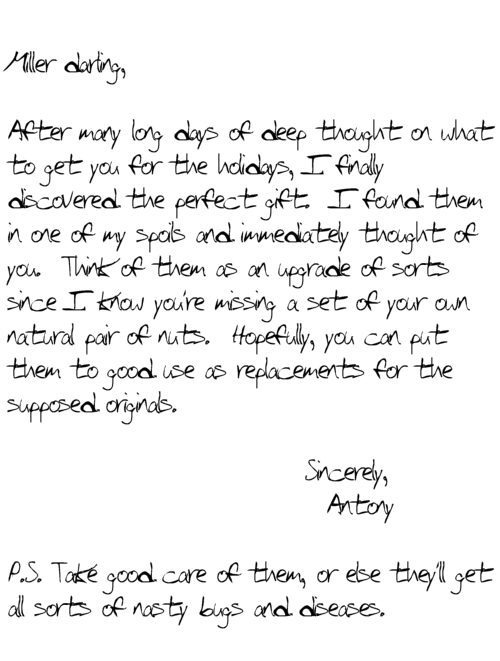 Miller darling,
After many long days of deep thought on what
to get you for the holidays, I finally
discovered the perfect gift. I found them
in one of my spoils and immediately thought of
you. Think of them as an upgrade of sorts
since I know you're missing a set of your own
natural pair of nuts. Hopefully, you can put
them to good use as replacements for the
supposed originals.
Sincerely,
Antony
P.S. Take good care of them, or else they'll get
all sorts of nasty bugs and diseases.